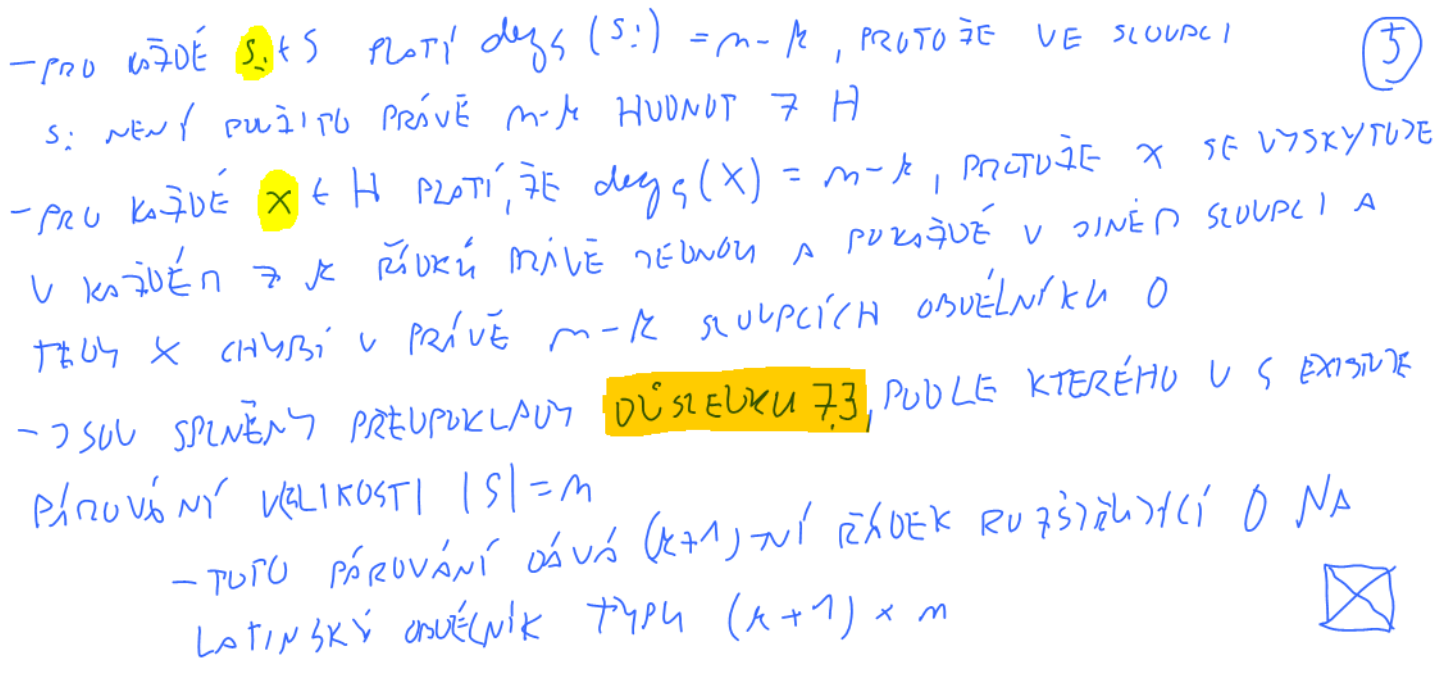 - PRO KAŽDÉ s_i ∈ S PLATÍ deg_G (s_i) = n-k, PROTOŽE VE SLOUPCI ⑤
s_i NENÍ POUŽITO PRÁVĚ n-k HODNOT Z H
- PRO KAŽDÉ x ∈ H PLATÍ, ŽE deg_G (x) = n-k, PROTOŽE x SE VYSKYTUJE
V KAŽDÉM Z k ŘÁDKŮ PRÁVĚ JEDNOU A POKAŽDÉ V JINÉM SLOUPCI A
TEDY x CHYBÍ V PRÁVĚ n-k SLOUPCÍCH OBDÉLNÍKU O
- JSOU SPLNĚNY PŘEDPOKLADY DŮSLEDKU 7.3, PODLE KTERÉHO V G EXISTUJE
PÁROVÁNÍ VELIKOSTI |S| = n
- TOTO PÁROVÁNÍ DÁVÁ (k+1)-NÍ ŘÁDEK ROZŠIŘUJÍCÍ O NA
LATINSKÝ OBDÉLNÍK TYPU (k+1) × n